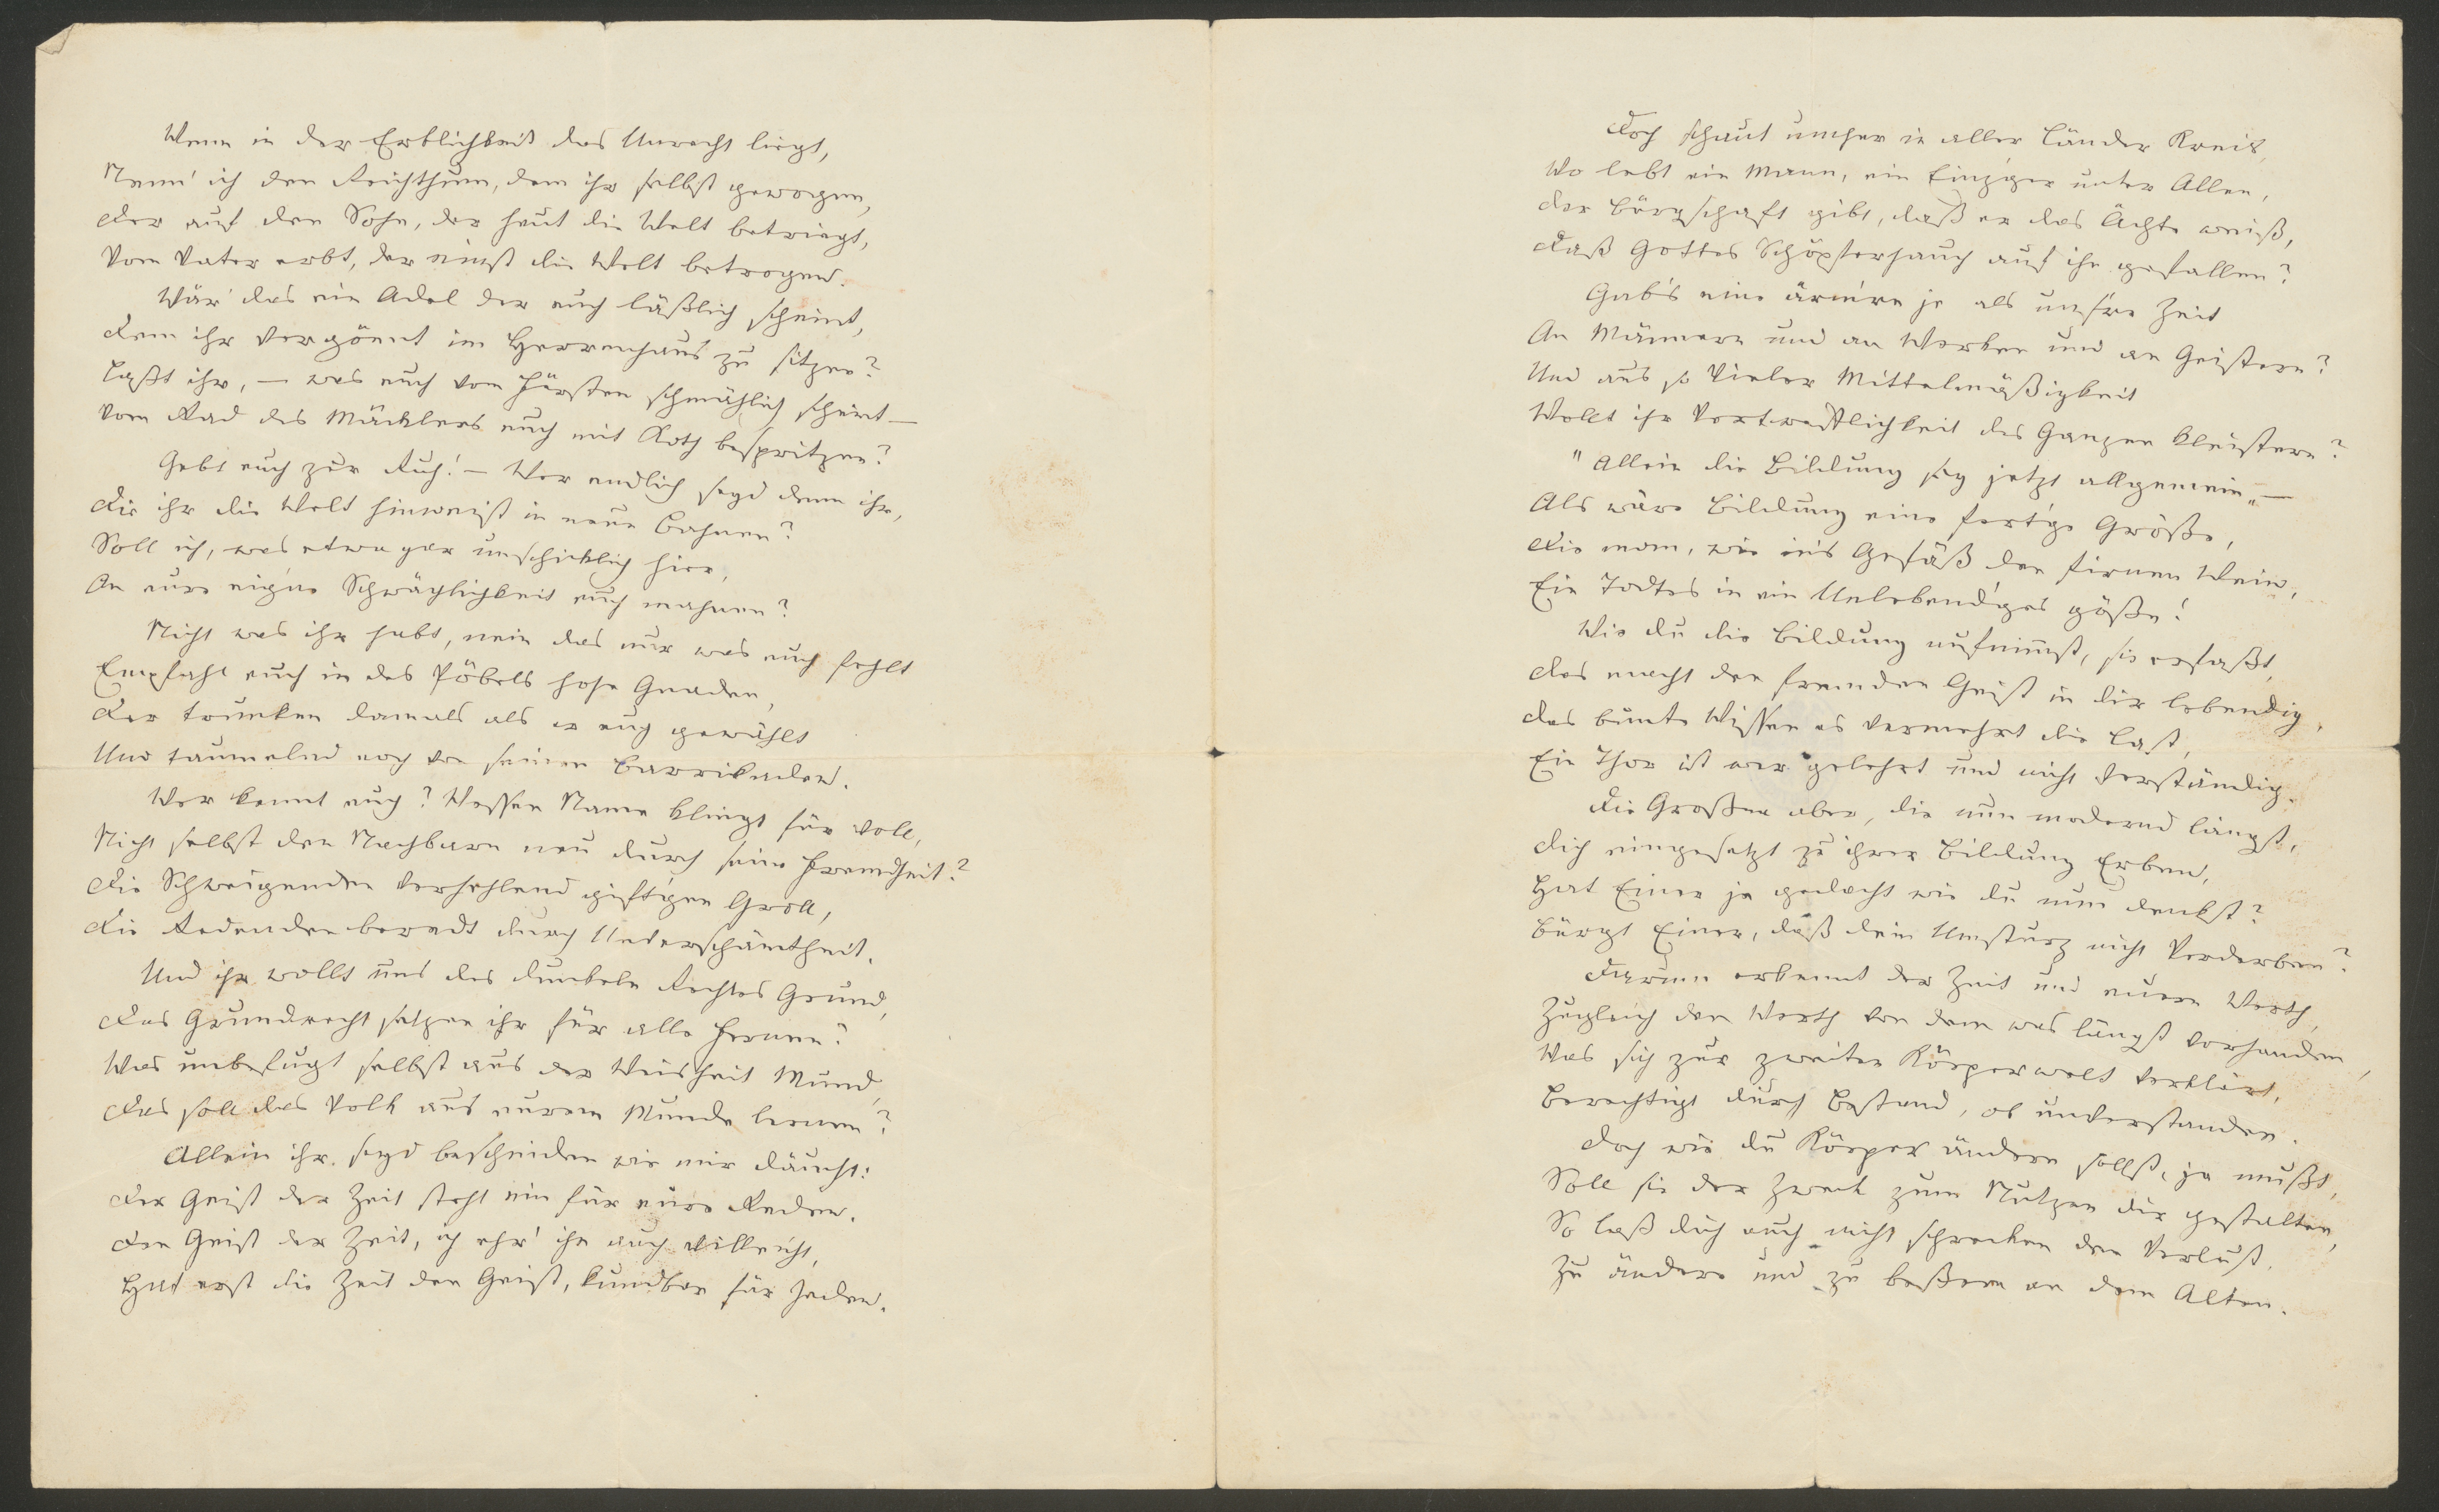 Wenn in der Erblichkeit das Unrecht liegt,
Nenn' ich den Reichthum, dem ihr selbst gewogen,
Der auf den Sohn, der heut die Welt betriegt,
Vom Vater erbt, der einst die Welt betrogen.
Wär' das ein Adel der euch läßlich scheint,
Dem ihr vergönnt im Herrenhaus zu sitzen?
Laßt ihr, – was euch vom Fürsten schmählich scheint –
Vom Rad des Mäcklers euch mit Koth bespritzen?
Gebt euch zur Ruh! – Wer endlich seyd denn ihr,
Die ihr die Welt hinweist in neue Bahnen?
Soll ich, was etwa gar unschicklich hier,
An eure eigne Schwächlichkeit euch mahnen?
Nicht was ihr habt, nein das nur was euch fehlt
Empfahl euch in des Pöbels hohe Gnaden,
Der trunken damals als er euch gewählt
Und taumelnd noch von seinen Barrikaden.
Wer kennt euch? Wessen Name klingt für voll,
Nicht selbst den Nachbarn neu durch seine Fremdheit?
Die Schweigenden verhehlend gift'gen Groll,
Die Redenden beredt durch Unverschämtheit.
Und ihr wollt uns des dunkeln Rechtes Grund,
Das Grundrecht setzen ihr für alle Fernen?
Was unbefugt selbst aus der Weisheit Mund,
Das soll das Volk aus eurem Munde lernen?
Allein ihr seyd bescheiden wie mir däucht:
Der Geist der Zeit steht ein für eure Reden.
Den Geist der Zeit, ich ehr' ihn auch villeicht,
Hat erst die Zeit den Geist, kundbar für Jeden.
Doch schaut umher in aller Länder Kreis,
Wo lebt ein Mann, ein Einz'ger unter Allen,
Der Bürgschaft gibt, daß er das Ächte weiß,
Daß Gottes Schöpferhauch auf ihn gefallen?
Gab's eine ärm're je als unsre Zeit
An Männern und an Werken und an Geistern?
Und aus so vieler Mittelmäßigkeit
Wollt ihr Vortrefflichkeit des Ganzen kleistern?
"Allein die Bildung sey jetzt allgemein" –
Als wäre Bildung eine fert'ge Größe,
Die man, wie in's Gefäß den firnen Wein,
Ein Todtes in ein Unlebend'ges göße!
Wie du die Bildung aufnimmst, sie erfaßt,
Das macht den fremden Geist in dir lebendig,
Das bunte Wissen es vermehrt die Last,
Ein Thor ist wer gelehrt und nicht verständig.
Die Großen aber, die nun modernd längst,
Dich eingesetzt zu ihrer Bildung Erben,
Hat Einer je gedacht wie du nun denkst?
Bürgt Einer, daß dein Umsturz nicht Verderben?
Darum erkennt der Zeit und euren Werth,
Zugleich den Werth von dem was längst vorhanden,
Was sich zur zweiten Körperwelt verklärt,
Berechtigt durch Bestand, ob unverstanden.
Doch wie du Körper ändern sollst, ja mußt,
Soll sie der Zweck zum Nutzen dir gestalten,
So laß dich auch nicht schrecken den Verlust,
Zu ändern und zu beßern an dem Alten.